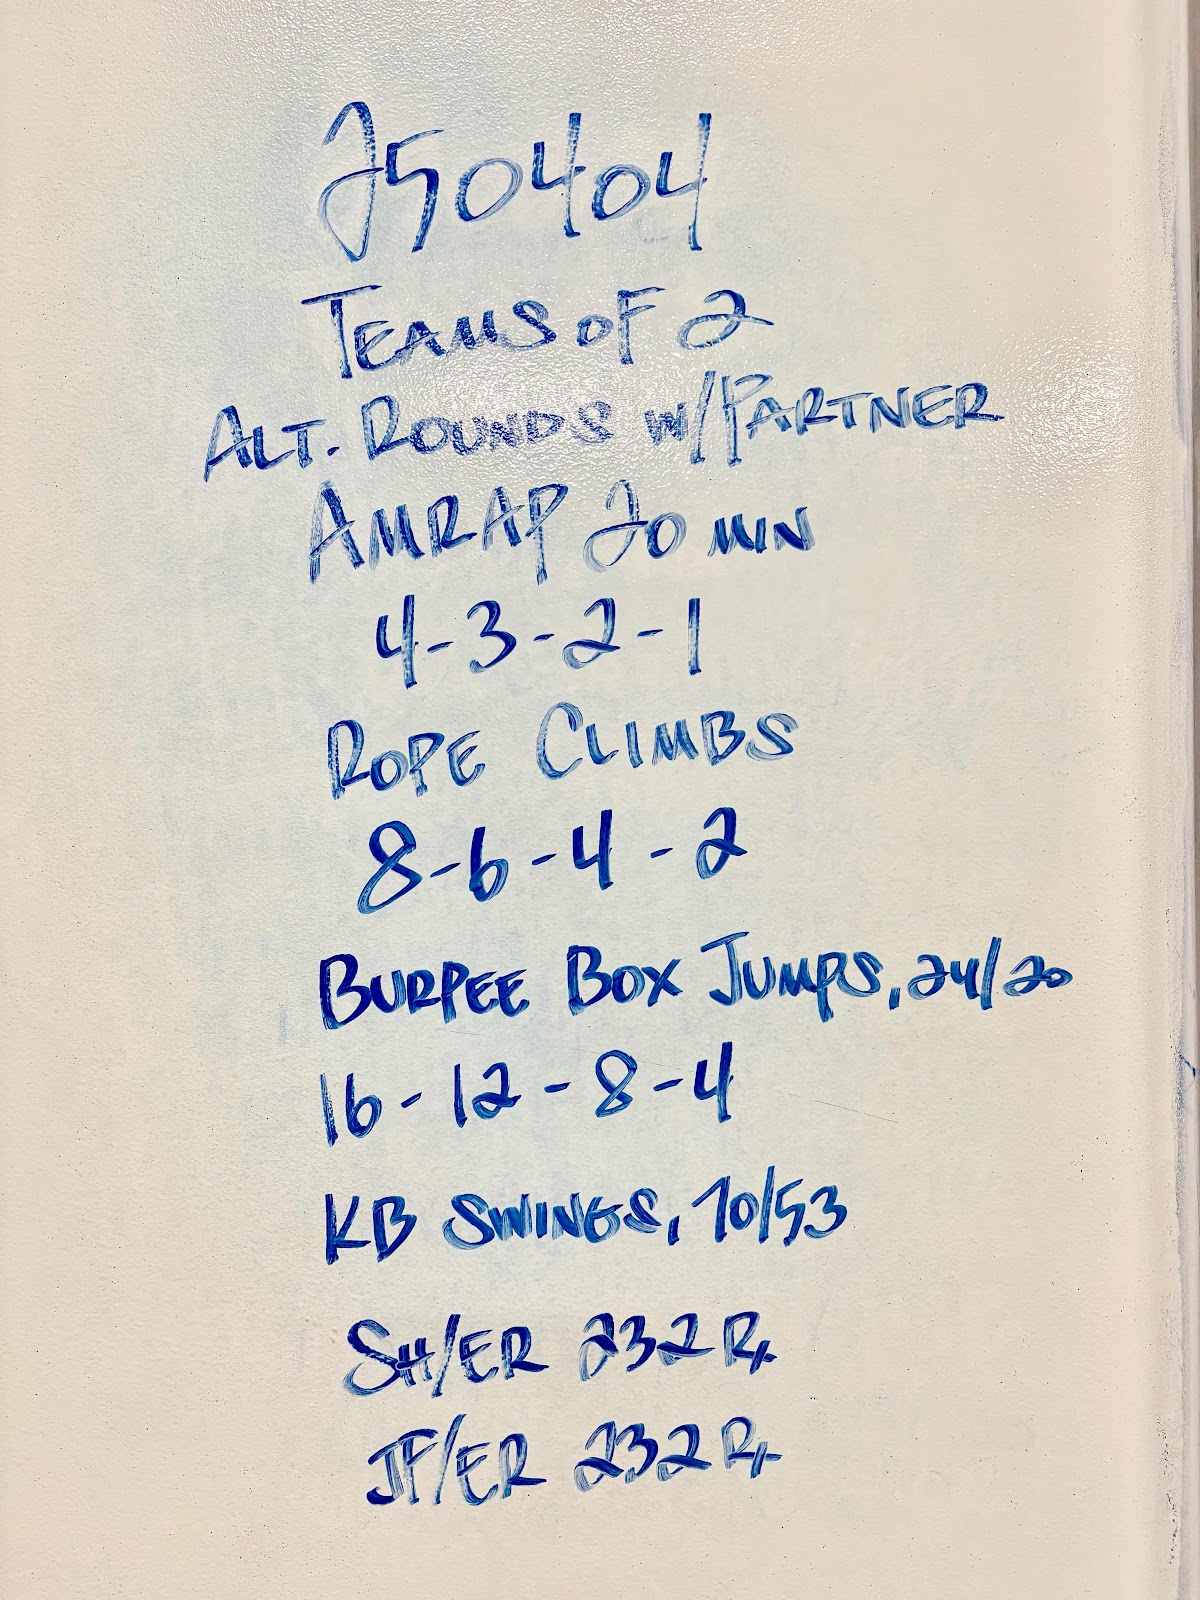 250404
TEAMS OF 2
ALT. ROUNDS W/PARTNER
AMRAP 20 MIN
4-3-2-1
ROPE CLIMBS
8-6-4-2
BURPEE BOX JUMPS, 24/20
16-12-8-4
KB SWINGS, 70/53
SH/ER 232 Rx
JF/ER 232 Rx